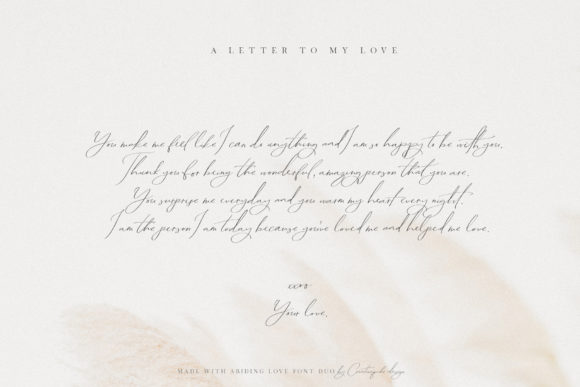 A LETTER TO MY LOVE
You make me feel like I can do anything and I am so happy to be with you.
Thank you for being the wonderful, amazing person that you are.
You surprise me everyday and you warm my heart every night!
I am the person I am today because you've loved me and helped me love.
xoxo
Your love,
MADE WITH ABIDING LOVE FONT DUO by